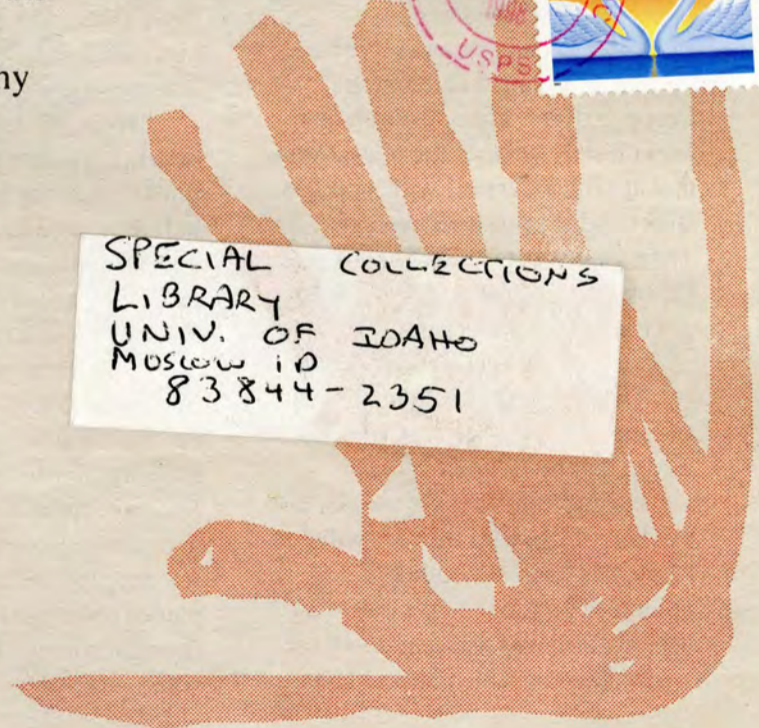 ny
USPS
SPECIAL COLLECTIONS
LIBRARY
UNIV. OF IDAHO
MOSCOW iD
83844-2351